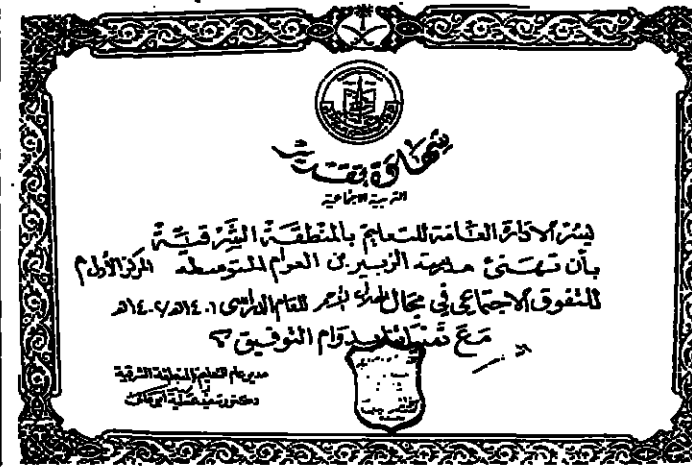 شهادة تقدير
التربية الاجتماعية
يسر الادارة العامة للتعليم بالمنطقة الشرقية
بأن تهنئ مدرسة الزبير بن العوام المتوسطه المركز الأول
للتفوق الاجتماعي في مجال الهلال الأحمر للعام الدراسي ١٤٠١هـ/١٤٠٢هـ
مع تمنياتنا بدوام التوفيق
مدير عام التعليم بالمنطقة الشرقية
دكتور سعيد عطية أبو عالي